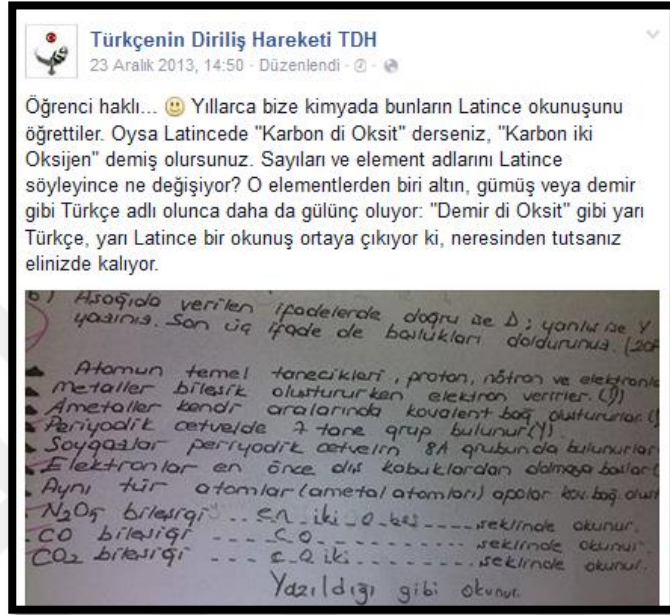 Türkçenin Diriliş Hareketi TDH
23 Aralık 2013, 14:50 · Düzenlendi ·
Öğrenci haklı... Yıllarca bize kimyada bunların Latince okunuşunu
öğrettiler. Oysa Latincede "Karbon di Oksit" derseniz, "Karbon iki
Oksijen" demiş olursunuz. Sayıları ve element adlarını Latince
söyleyince ne değişiyor? O elementlerden biri altın, gümüş veya demir
gibi Türkçe adlı olunca daha da gülünç oluyor: "Demir di Oksit" gibi yarı
Türkçe, yarı Latince bir okunuş ortaya çıkıyor ki, neresinden tutsanız
elinizde kalıyor.
6) Aşağıda verilen ifadelerde doğru ise D; yanlış ise Y
yazınız. Son üç ifade de boşlukları doldurunuz. (20P
Atomun temel tanecikleri, proton, nötron ve elektronla
Metaller bileşik oluştururken elektron verirler. (D)
Ametaller kendi aralarında kovalent bağ oluştururlar. (
Periyodik cetvelde 7 tane grup bulunur (Y).
Soygazlar periyodik cetvelin 8A grubunda bulunurlar
Elektronlar en önce dış kabuklardan dolmaya başlar (
Aynı tür atomlar (ametal atomları) apolar kov. bağ oluşt
N₂O₅ bileşiği .. en iki o beş ---- şeklinde okunur.
CO bileşiği --- c o ---- şeklinde okunur.
CO₂ bileşiği --- c o iki ---- şeklinde okunur.
Yazıldığı gibi okunur.